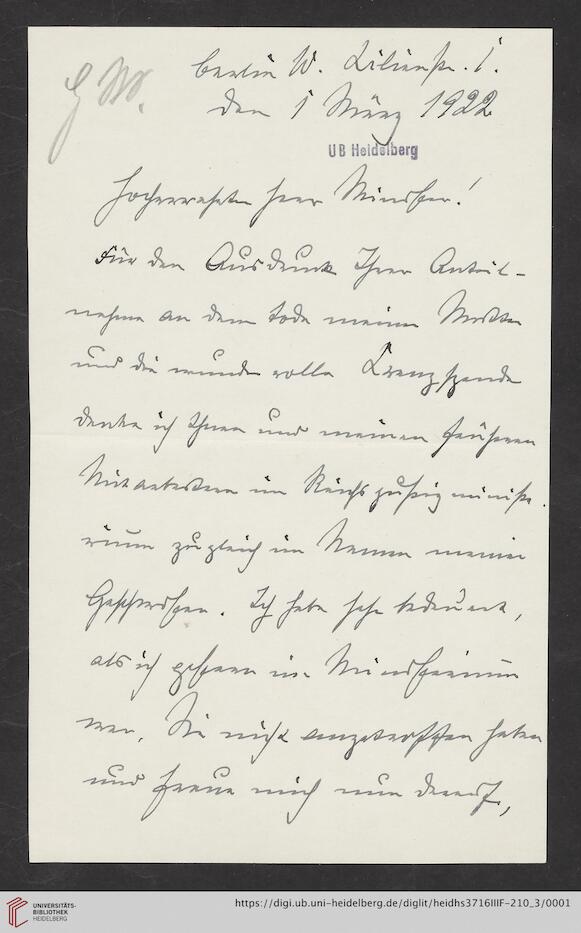 Berlin W. Lilienstr. 1.
den 1 März 1922
UB Heidelberg
Hochverehrter Herr Minister!
Für den Ausdruck Ihrer Anteil-
nahme an dem Tode meiner Mutter
und die wundervolle Kranzspende
danke ich Ihnen und meinen früheren
Mitarbeitern im Reichsjustizministe
rium zugleich im Namen meiner
Geschwister. Ich habe sehr bedauert,
als ich gestern im Ministerium
war, Sie nicht angetroffen haben
und freue mich nun darauf,
UNIVERSITÄTS-
BIBLIOTHEK
HEIDELBERG
https://digi.ub.uni-heidelberg.de/diglit/heidhs3716IIIF-210_3/0001